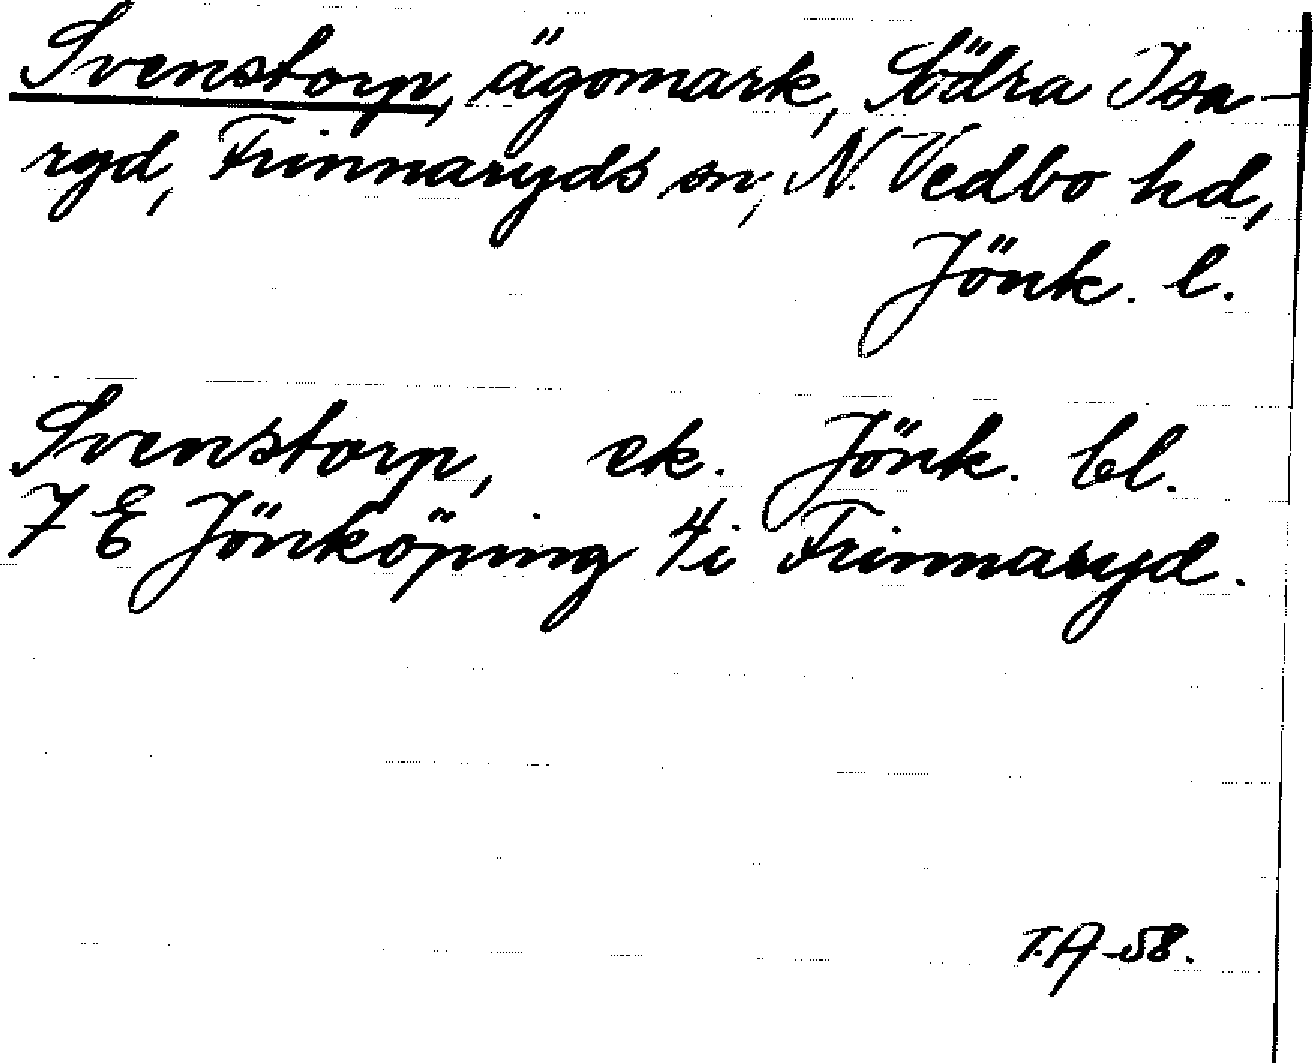 Svenstorp, ägomark, Södra Isa-
ryd, Frinnaryds sn, N. Vedbo hd,
Jönk. l.
Svenstorp, ek. Jönk. bl.
7 E Jönköping 4i Frinnaryd.
T.A-58.